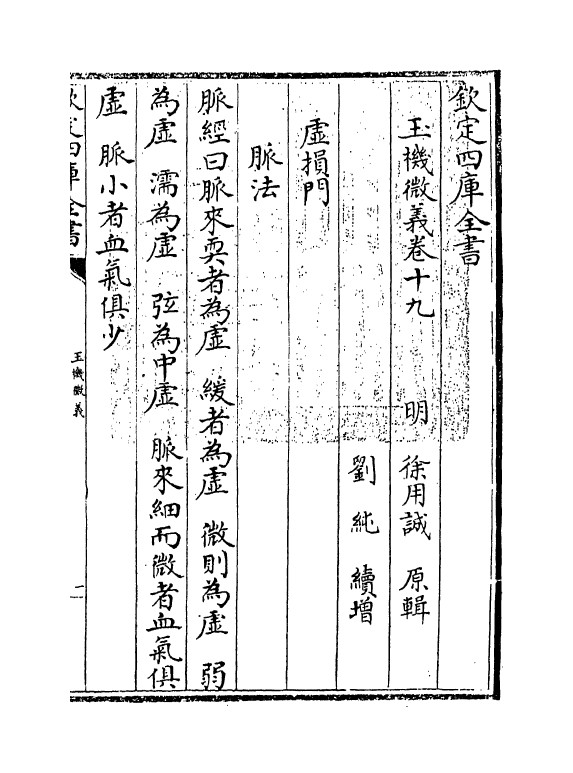 欽定四庫全書
玉機微義卷十九
明 徐用誠 原輯
劉純 續增
虛損門
脈法
脈經曰脈來耎者為虛 緩者為虛 微則為虛 弱
為虛 濡為虛 弦為中虛 脈來細而微者血氣俱
虛 脈小者血氣俱少
欽定四庫全書
玉機微義